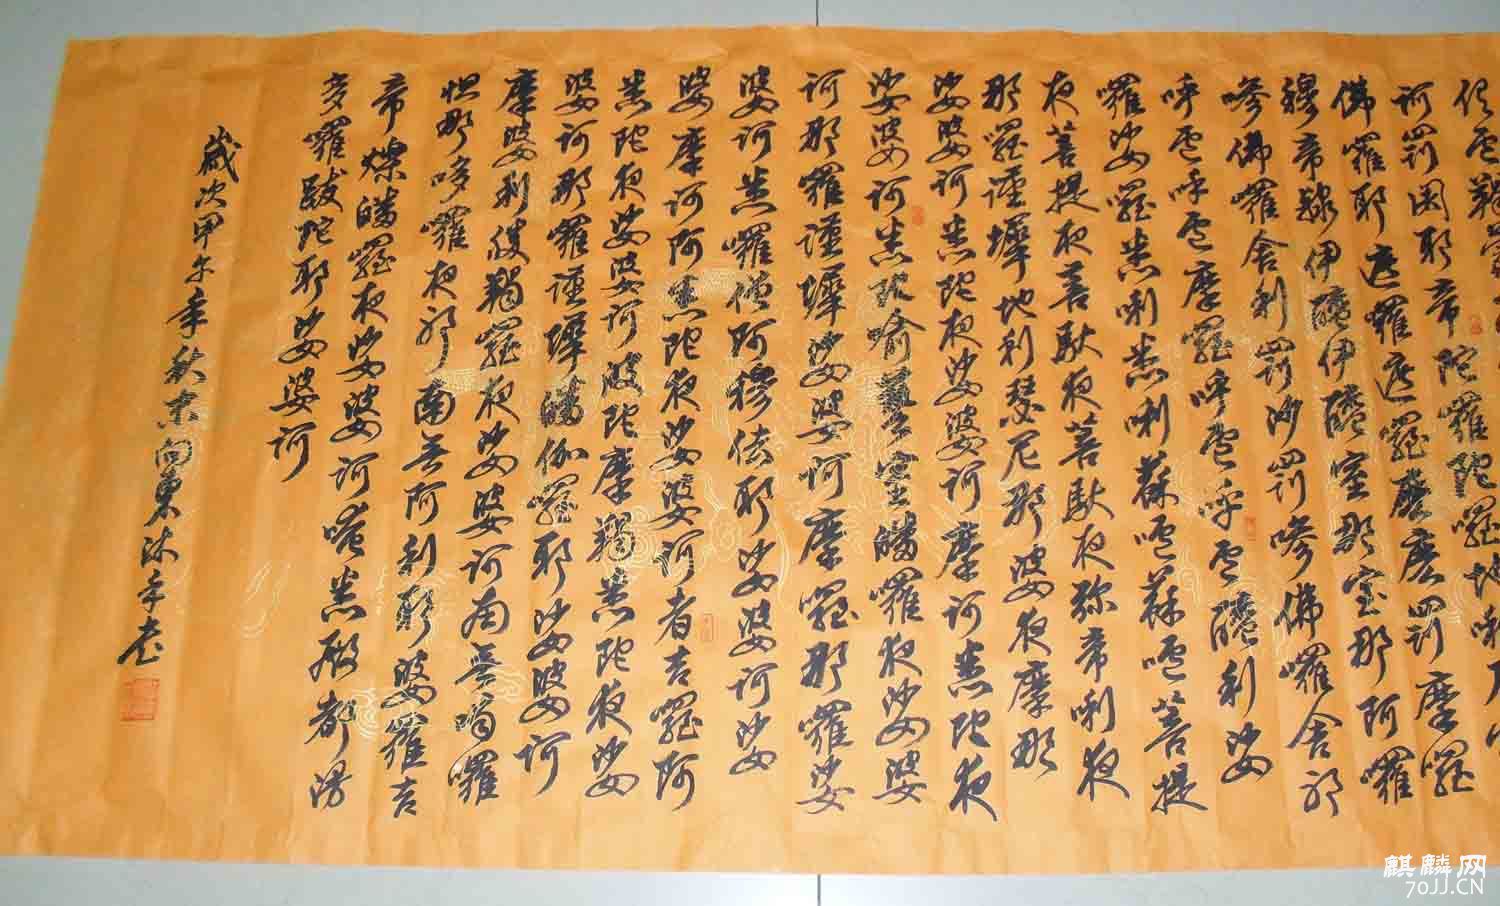 訶罰闍耶帝陀羅陀囉地唎尼
佛囉耶遮羅遮囉麼麼罰摩囉
穆帝隸伊醯伊醯室那室那阿囉
嘇佛囉舍利罰沙罰嘇佛囉舍耶
呼盧呼盧摩囉呼盧呼盧醯利娑
囉娑囉悉唎悉唎蘇嚧蘇嚧菩提
夜菩提夜菩馱夜菩馱夜彌帝唎夜
那囉謹墀地利瑟尼那婆夜摩那
娑婆訶悉陀夜娑婆訶摩訶悉陀夜
娑婆訶悉陀喻藝室皤囉夜娑婆
訶那囉謹墀娑婆訶摩囉那囉娑
婆訶悉囉僧阿穆佉耶娑婆訶娑
婆摩訶阿悉陀夜娑婆訶者吉囉阿
悉陀夜娑婆訶波陀摩羯悉陀夜娑
婆訶那囉謹墀皤伽囉耶娑婆訶
摩婆利勝羯囉夜娑婆訶南無喝囉
怛那哆囉夜耶南無阿利耶婆羅吉
帝爍皤囉夜娑婆訶唵悉殿都漫
多囉跋陀耶娑婆訶
歲次甲午季秋末向東沐手書
麒麟网
70JJ.CN